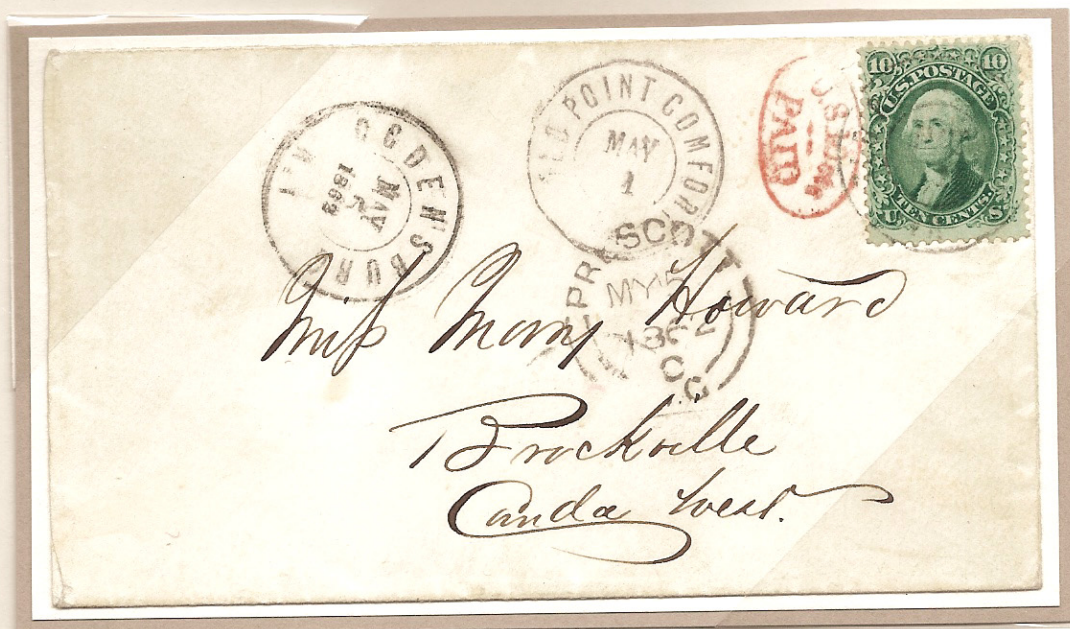 OGDENSBURG N.Y.
MAY
1862
OLD POINT COMFORT
MAY
1
U.S.
PAID
10 10
U.S. POSTAGE
TEN CENTS.
U. S.
PRESCOTT
MY 5
1862
Miss Mary Howard
Brockville
Canda West.